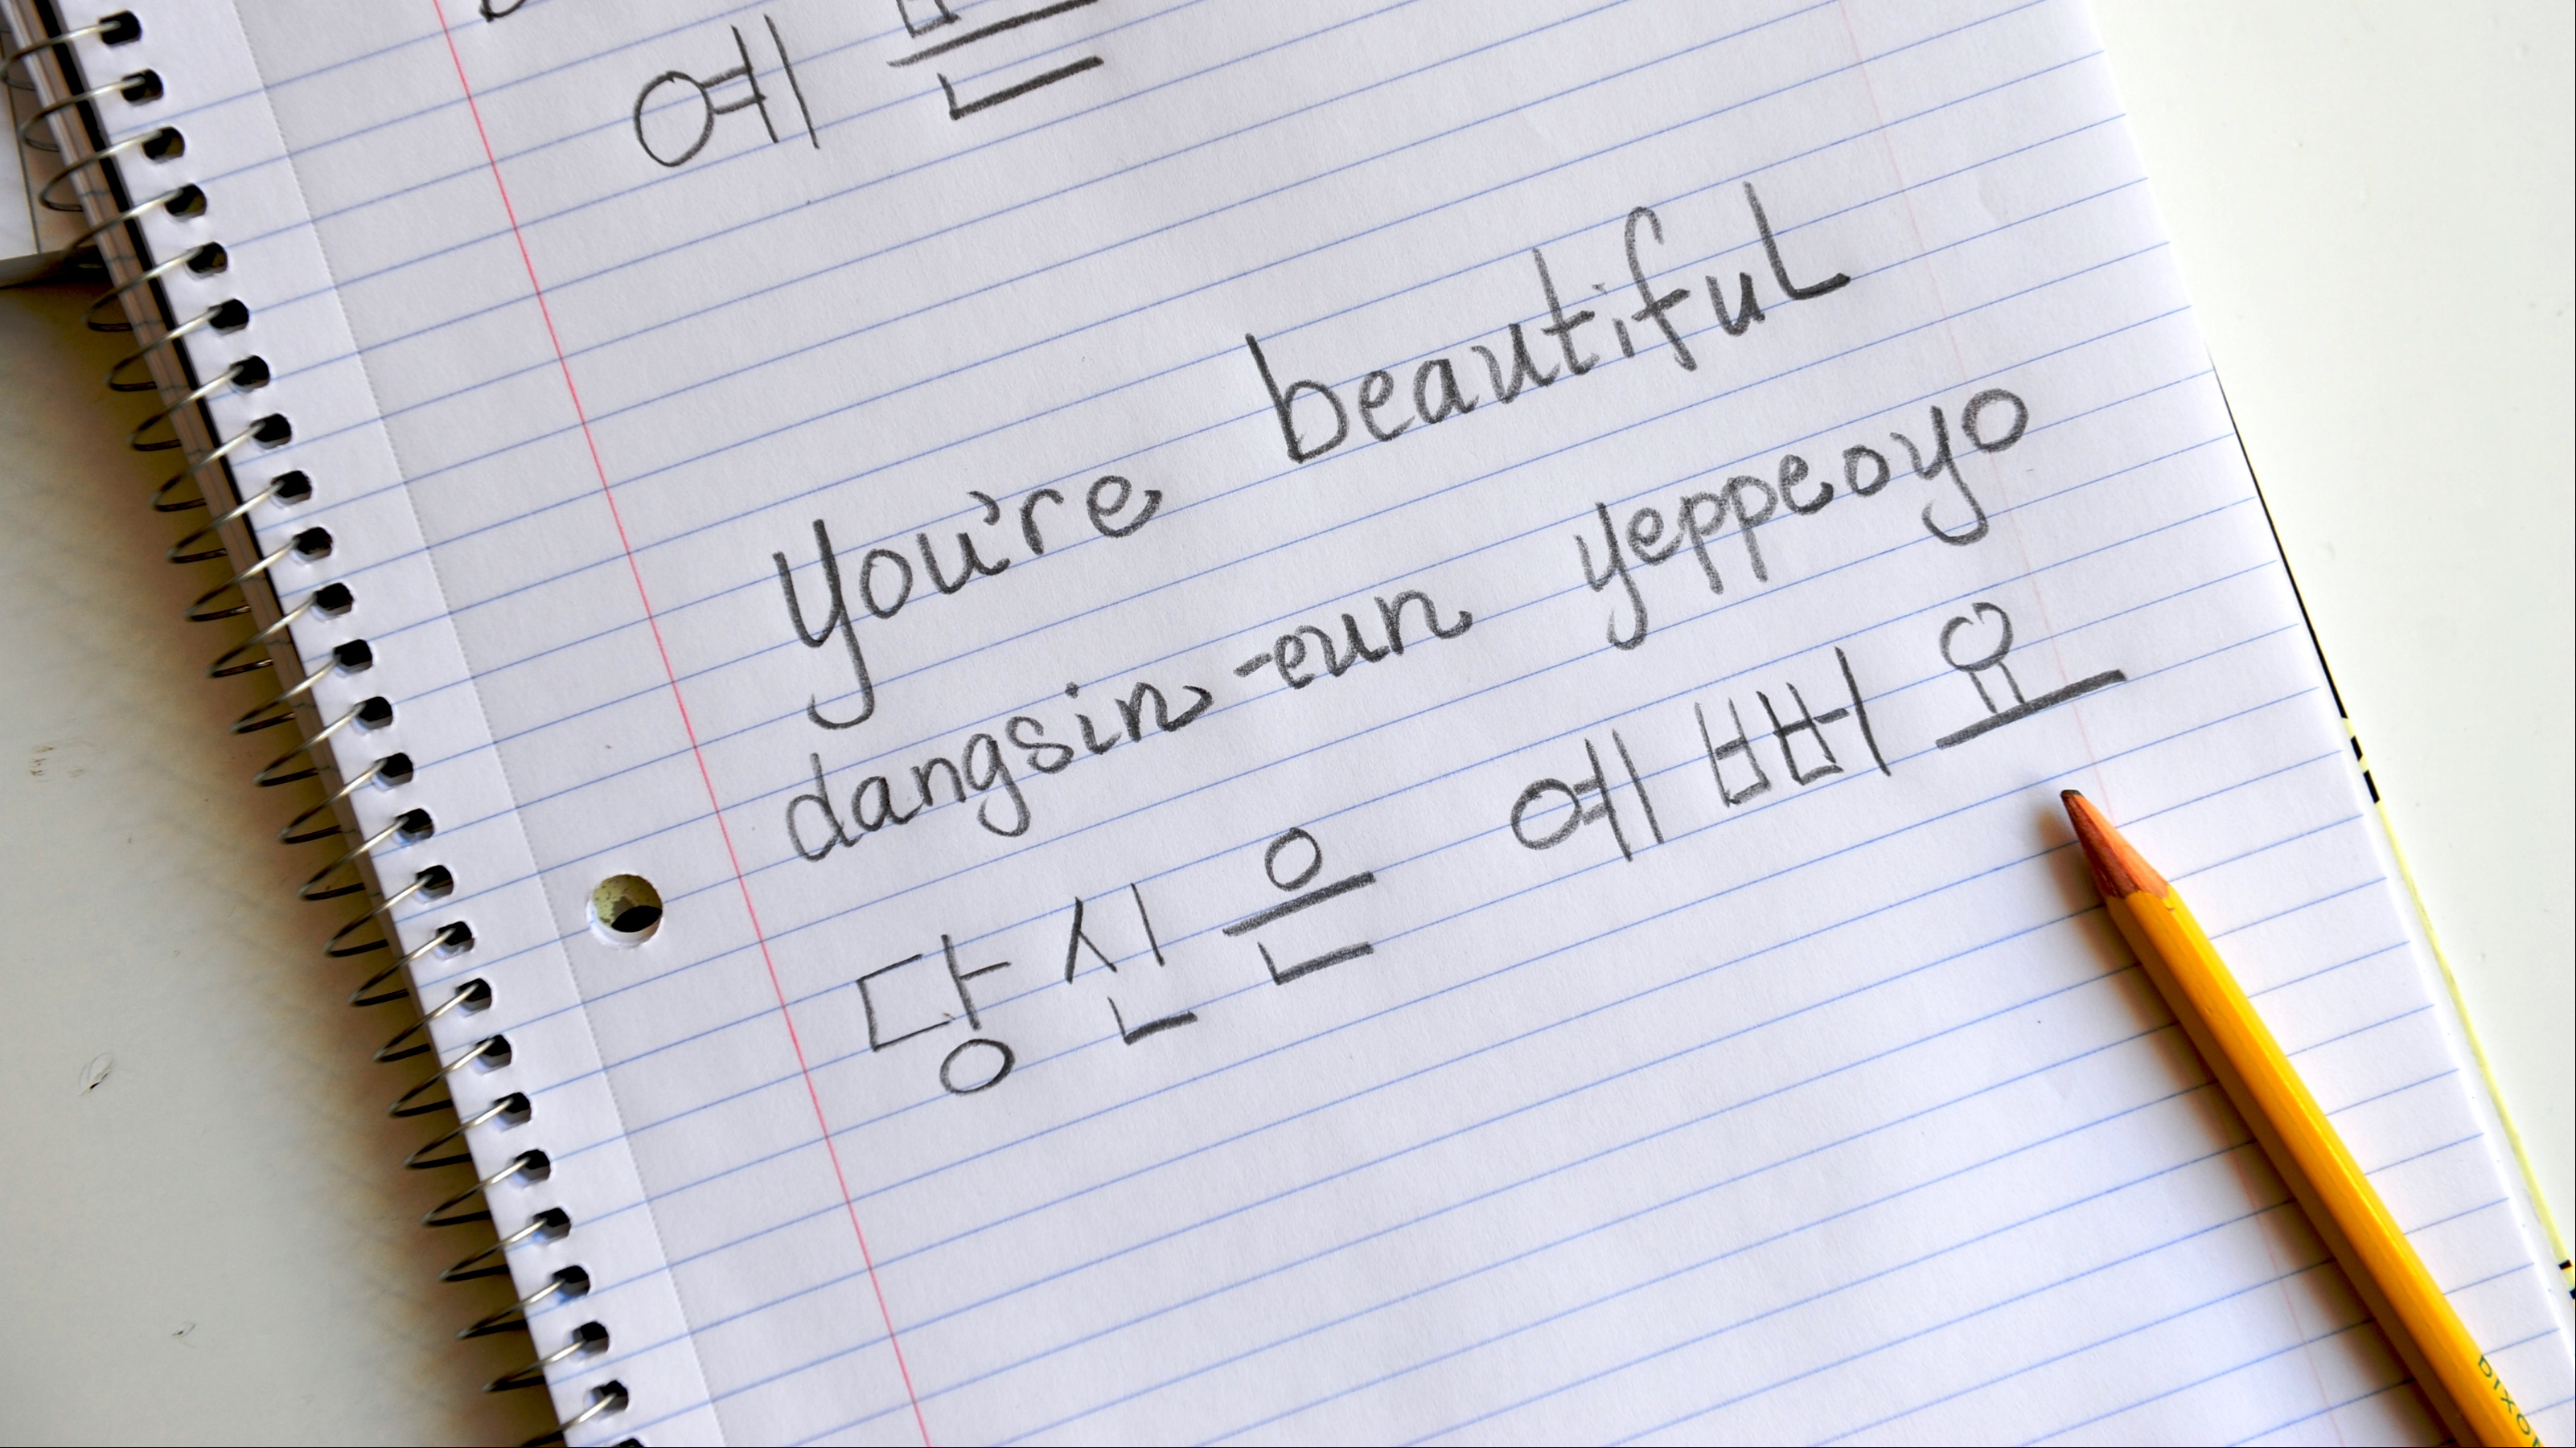 예
You're beautiful
dangsin-eun yeppeoyo
당신은 예뻐요